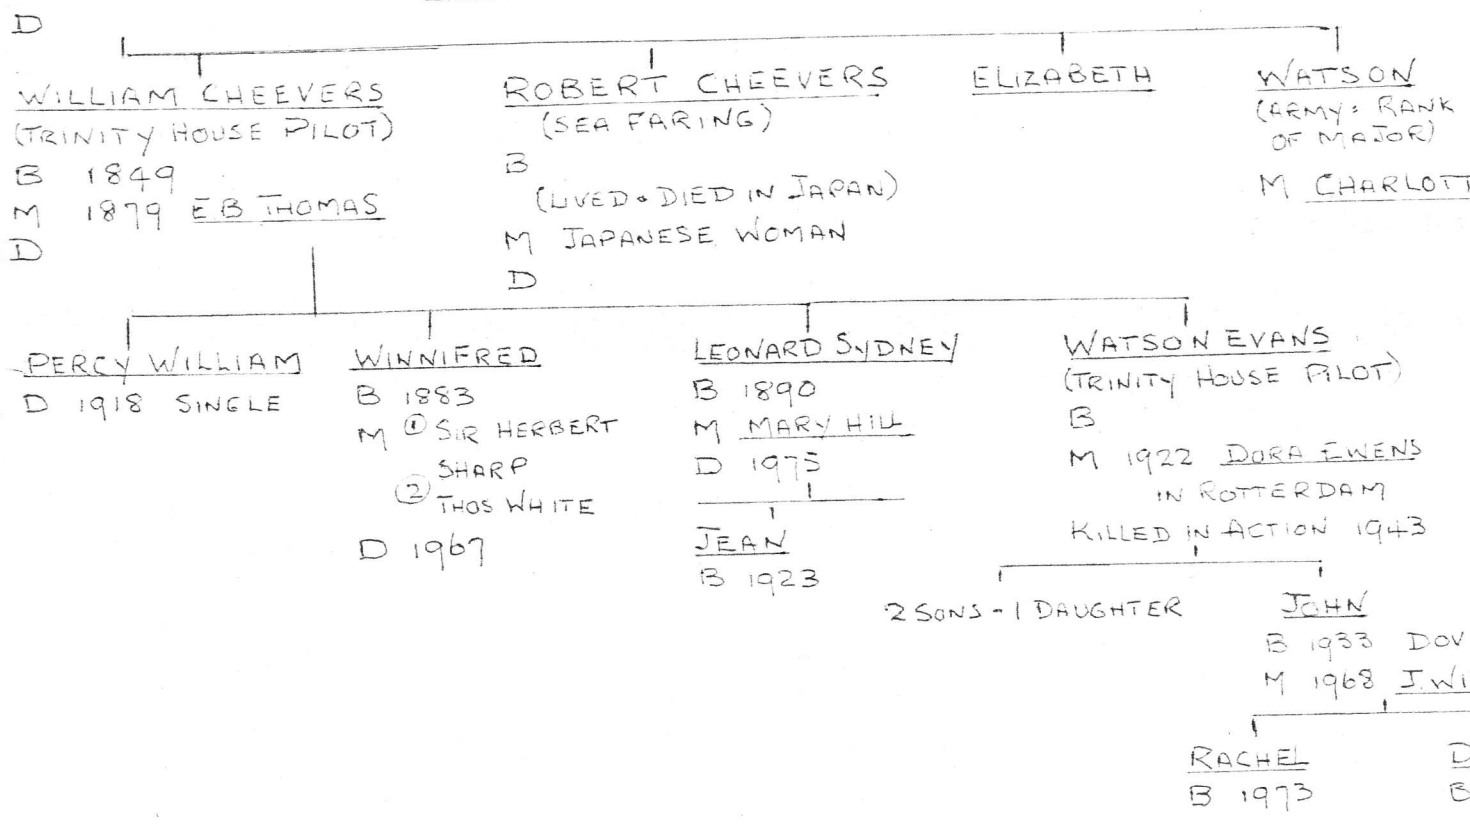 D
WILLIAM CHEEVERS
(TRINITY HOUSE PILOT)
B 1849
M 1879 E B THOMAS
D
ROBERT CHEEVERS
(SEA FARING)
B
(LIVED & DIED IN JAPAN)
M JAPANESE WOMAN
D
ELIZABETH
WATSON
(ARMY: RANK
OF MAJOR)
M CHARLOTT
PERCY WILLIAM
D 1918 SINGLE
WINNIFRED
B 1883
M ① SIR HERBERT
SHARP
② THOS WHITE
D 1967
LEONARD SYDNEY
B 1890
M MARY HILL
D 1975
JEAN
B 1923
WATSON EVANS
(TRINITY HOUSE PILOT)
B
M 1922 DORA EWENS
IN ROTTERDAM
KILLED IN ACTION 1943
2 SONS - 1 DAUGHTER
JOHN
B 1933 DOV
M 1968 J. WI
RACHEL
B 1973
D
B